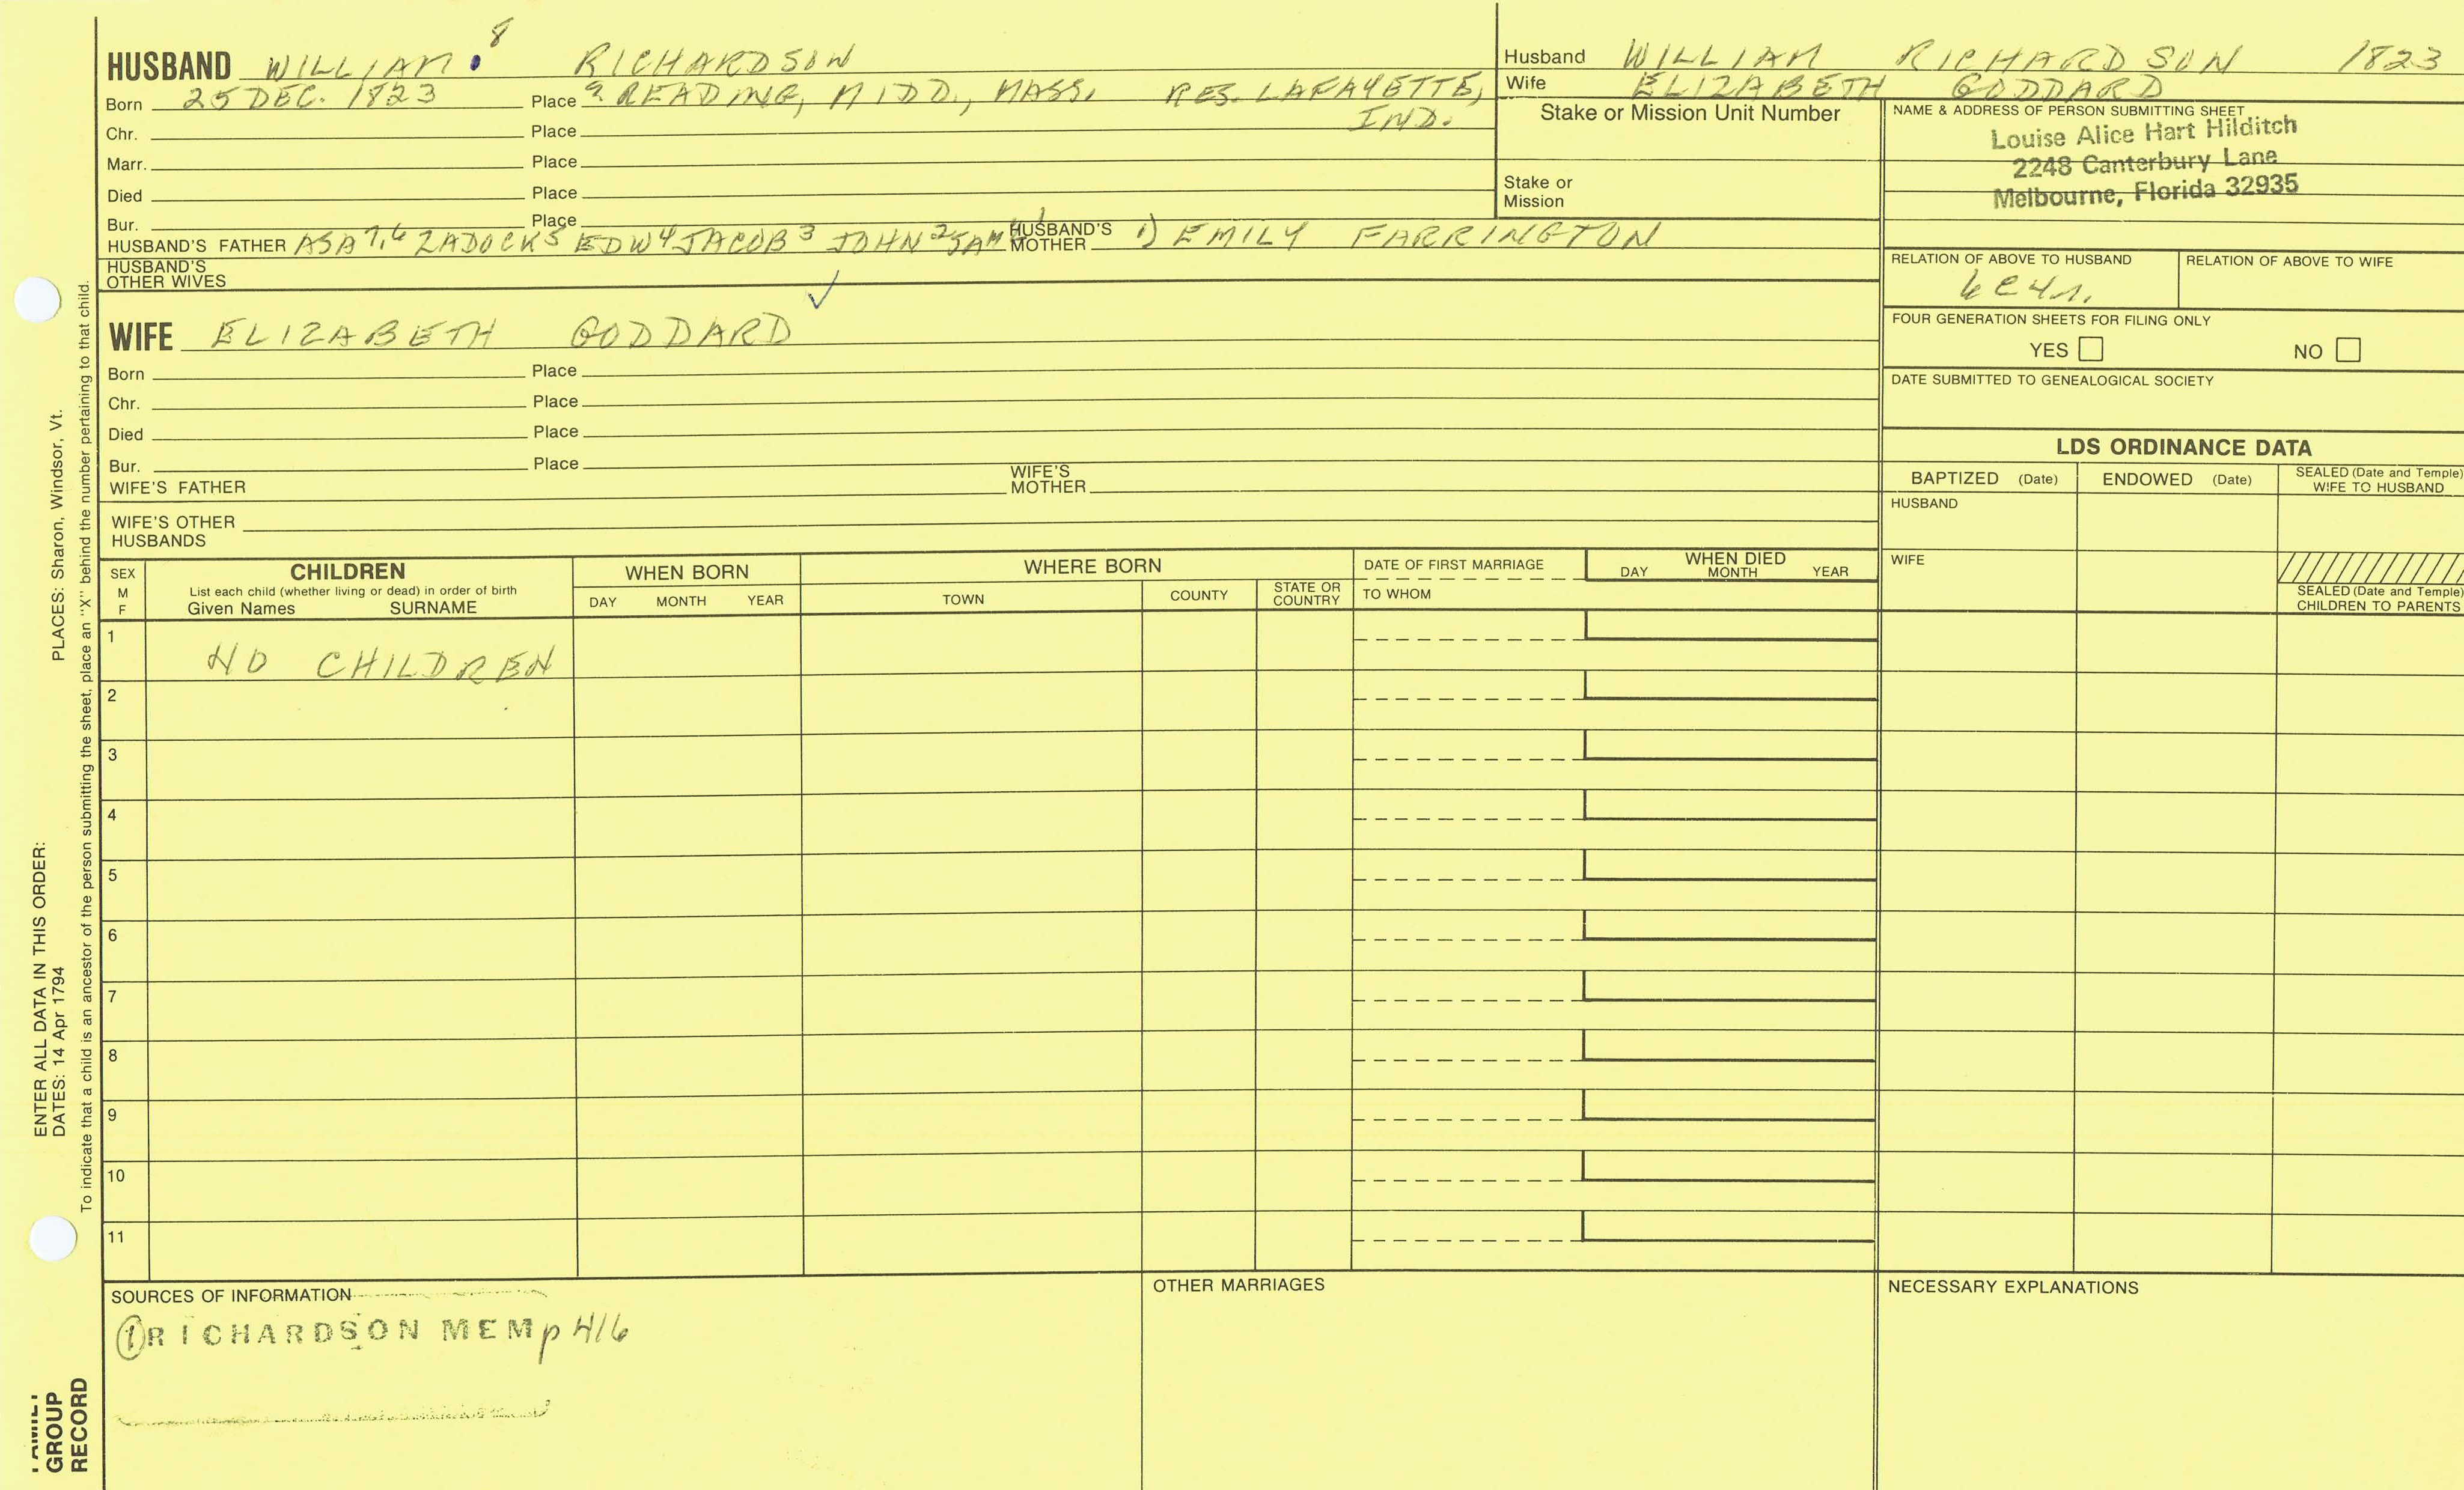 HUSBAND WILLIAM 8 RICHARDSON
Born 25 DEC. 1823 Place ? READING, MIDD., MASS. RES. LAFAYETTE, IND.
Chr. Place
Marr. Place
Died Place
Bur. Place
HUSBAND'S FATHER ASA 7, 6 ZADOCK 5 EDW 4 JACOB 3 JOHN 2 SAM 1 HUSBAND'S MOTHER 1) EMILY FARRINGTON
HUSBAND'S OTHER WIVES
WIFE ELIZABETH GODDARD
Born Place
Chr. Place
Died Place
Bur. Place
WIFE'S FATHER WIFE'S MOTHER
WIFE'S OTHER HUSBANDS
Husband WILLIAM RICHARDSON 1823
Wife ELIZABETH GODDARD
Stake or Mission Unit Number
Stake or Mission
NAME & ADDRESS OF PERSON SUBMITTING SHEET
Louise Alice Hart Hilditch
2248 Canterbury Lane
Melbourne, Florida 32935
RELATION OF ABOVE TO HUSBAND RELATION OF ABOVE TO WIFE
FOUR GENERATION SHEETS FOR FILING ONLY
YES NO
DATE SUBMITTED TO GENEALOGICAL SOCIETY
LDS ORDINANCE DATA
BAPTIZED (Date) ENDOWED (Date) SEALED (Date and Temple) WIFE TO HUSBAND
HUSBAND
WIFE
SEALED (Date and Temple) CHILDREN TO PARENTS
SEX M F
CHILDREN
List each child (whether living or dead) in order of birth
Given Names SURNAME
WHEN BORN
DAY MONTH YEAR
WHERE BORN
TOWN COUNTY STATE OR COUNTRY
DATE OF FIRST MARRIAGE
TO WHOM
WHEN DIED
DAY MONTH YEAR
1 NO CHILDREN
2
3
4
5
6
7
8
9
10
11
SOURCES OF INFORMATION
1 RICHARDSON MEM p 416
OTHER MARRIAGES
NECESSARY EXPLANATIONS
ENTER ALL DATA IN THIS ORDER:
DATES: 14 Apr 1794 PLACES: Sharon, Windsor, Vt.
To indicate that a child is an ancestor of the person submitting the sheet, place an "X" behind the number pertaining to that child.
FAMILY
GROUP
RECORD